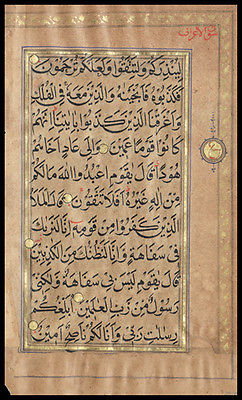 سورة الأعراف
لينذركم ولتتقوا ولعلكم ترحمون
فكذبوه فأنجيناه والذين معه في الفلك
وأغرقنا الذين كذبوا بآياتنا إنهم
كانوا قوما عمين وإلى عاد أخاهم
هودا قال يا قوم اعبدوا الله ما لكم
من إله غيره أفلا تتقون قال الملأ
الذين كفروا من قومه إنا لنراك
في سفاهة وإنا لنظنك من الكاذبين
قال يا قوم ليس بي سفاهة ولكني
رسول من رب العالمين أبلغكم
رسالات ربي وأنا لكم ناصح أمين